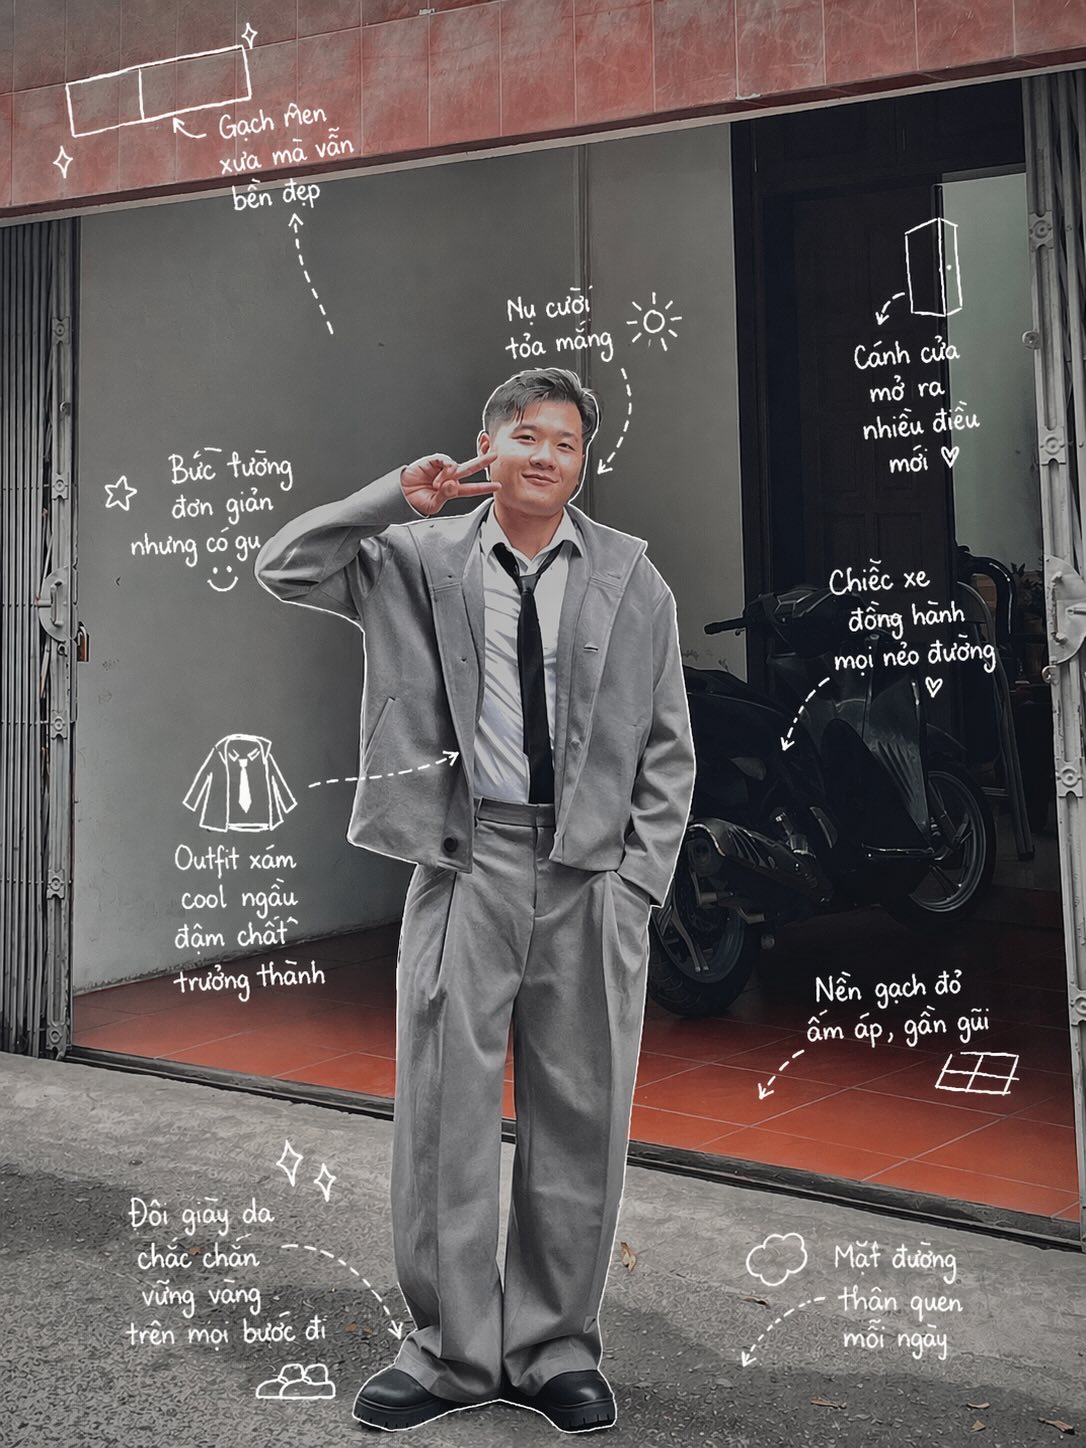 Gạch men
xưa mà vẫn
bền đẹp
Nụ cười
tỏa mắng
Cánh cửa
mở ra
nhiều điều
mới
Bức tường
đơn giản
nhưng có gu
Chiếc xe
đồng hành
mọi nẻo đường
Outfit xám
cool ngầu
đậm chất
trưởng thành
Nền gạch đỏ
ấm áp, gần gũi
Đôi giày da
chắc chắn
vững vàng
trên mọi bước đi
Mặt đường
thân quen
mỗi ngày